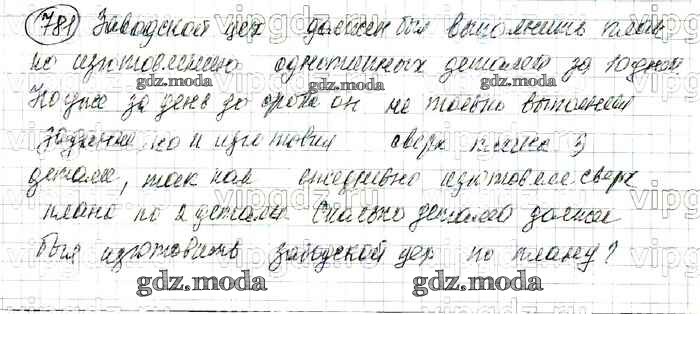 781 Заводской цех должен был выполнить план
по изготовлению однотипных деталей за 10 дней.
Но уже за день до срока он не только выполнил
задание, но и изготовил сверх плана 3
детали, так как ежедневно изготовлял сверх
плана по 2 детали. Сколько деталей должен
был изготовить заводской цех по плану?
gdz.moda gdz.moda
gdz.moda gdz.moda
gdz.moda gdz.moda
vipgdz.ru